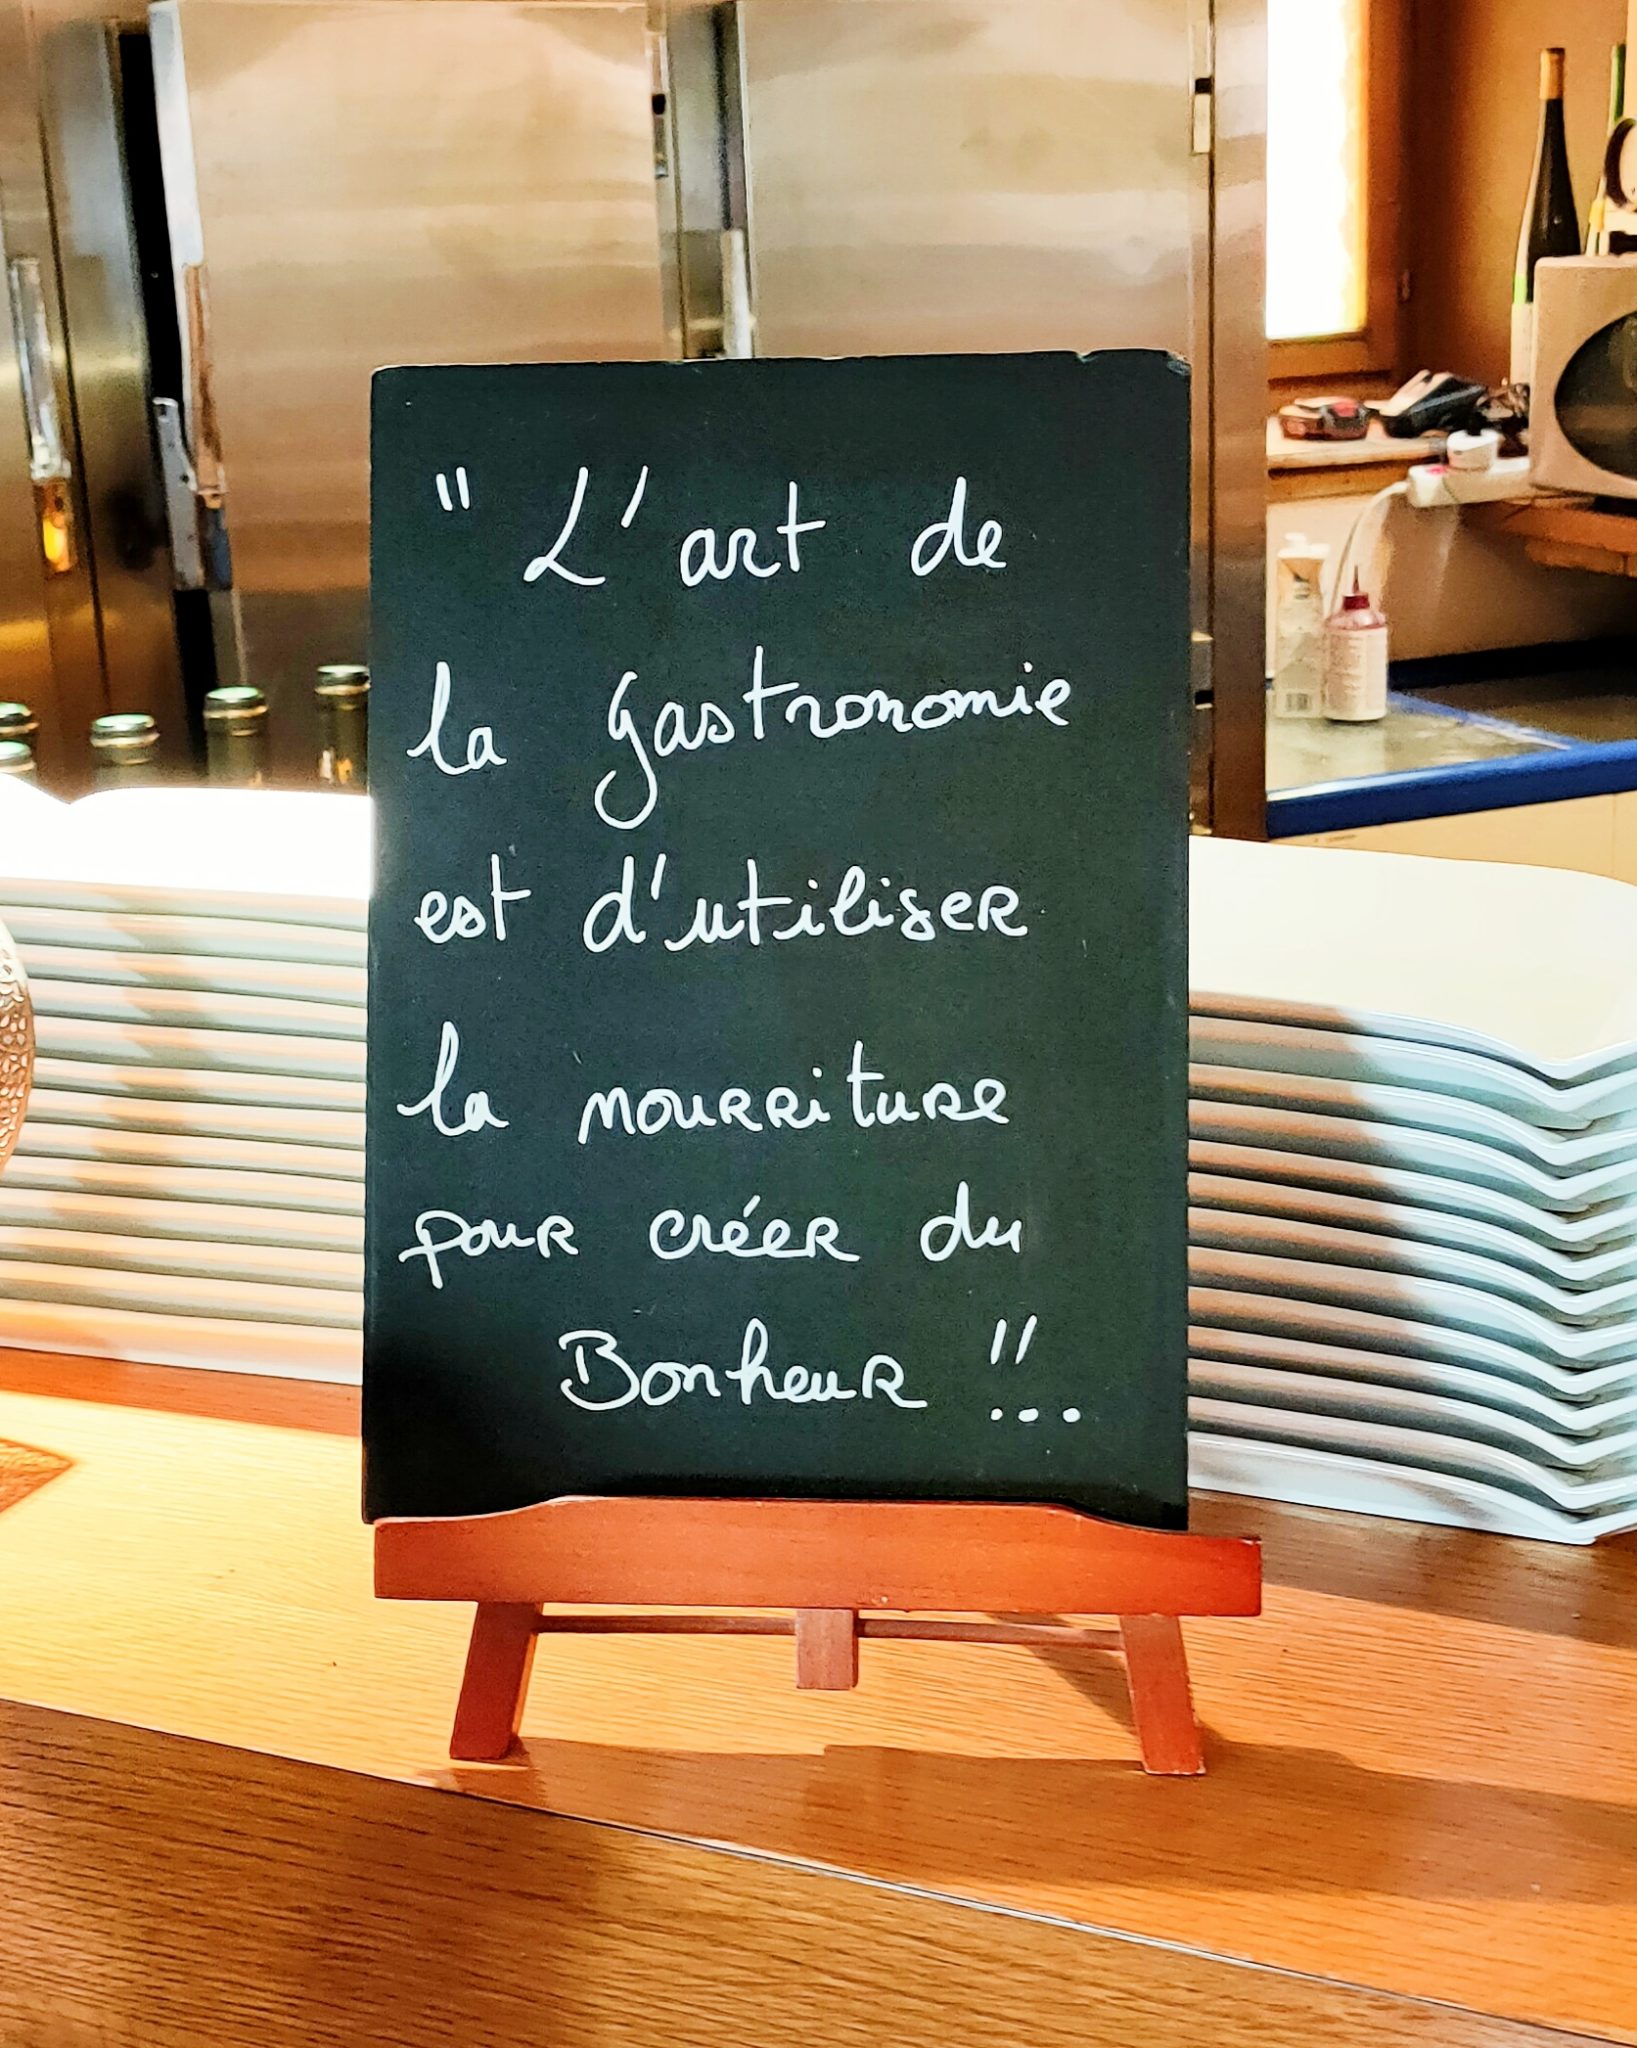 " L'art de
la gastronomie
est d'utiliser
la nourriture
pour créer du
Bonheur "...